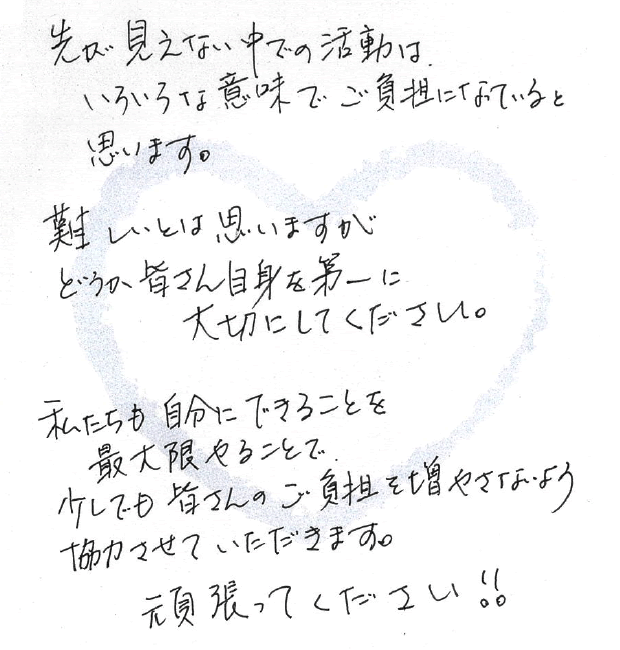 先が見えない中での活動は、
いろいろな意味でご負担になっていると
思います。
難しいとは思いますが
どうか皆さん自身を第一に
大切にしてください。
私たちも自分にできることを
最大限やることで、
少しでも皆さんのご負担を増やさないよう
協力させていただきます。
頑張ってください!!